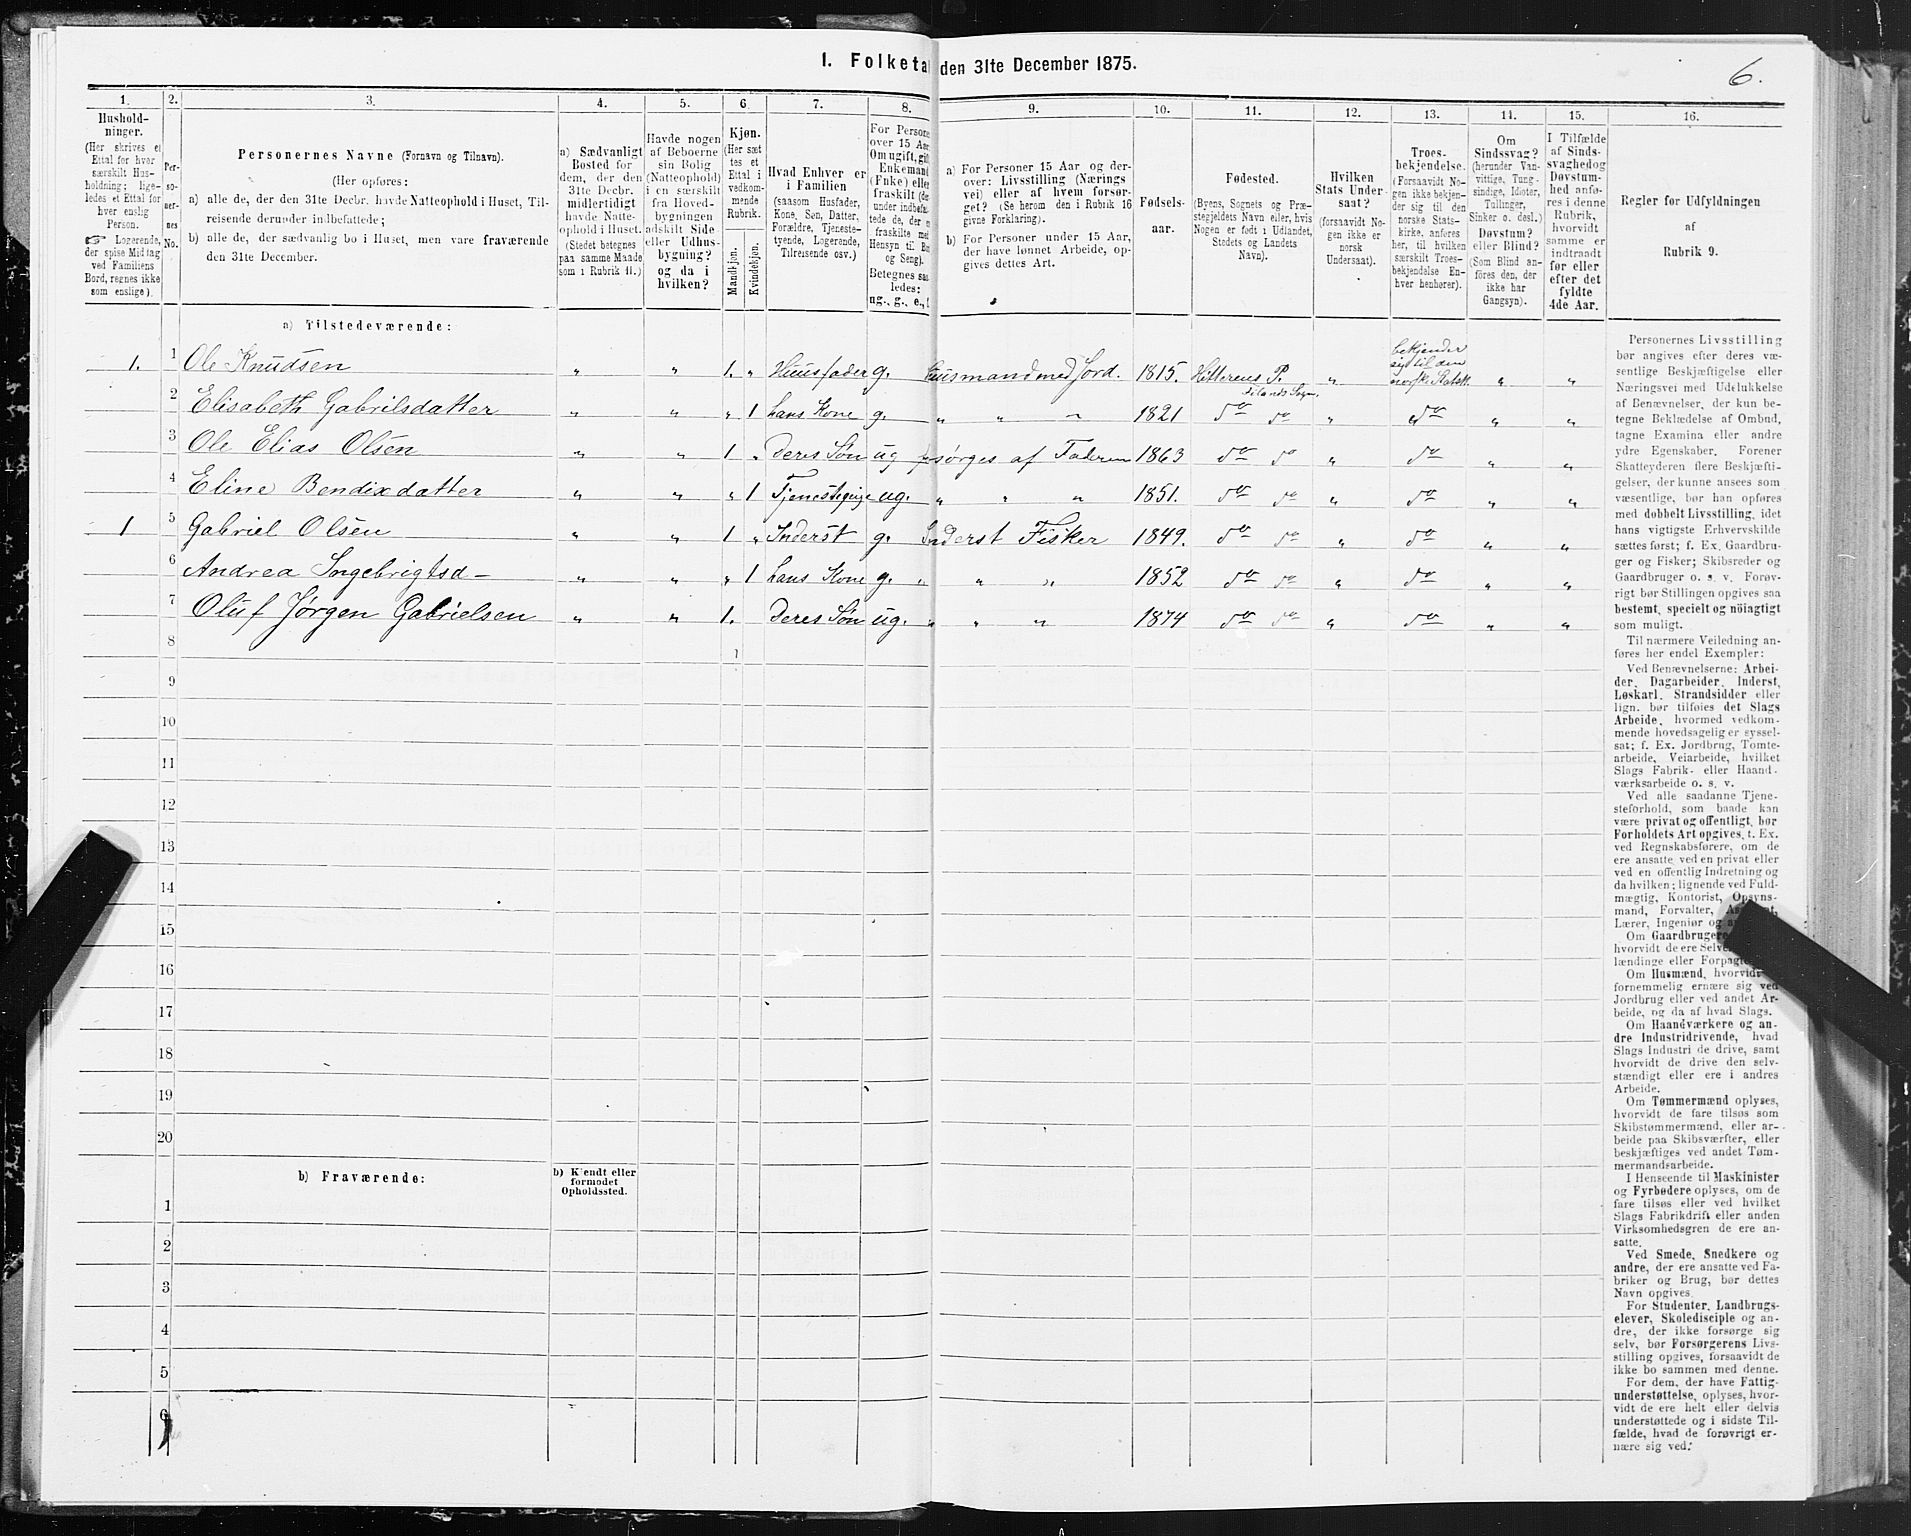 1. Folketa den 31te December 1875.
6.
1. 2. 3. 4. 5. 6. 7. 8. 9. 10. 11. 12. 13. 14. 15. 16.
Hushold-
ninger.
(Her skrives et
Ettal for hver
særskilt Hus-
holdning; lige-
ledes et Ettal for
hver enslig
Person.
☞ Logerende,
der spise Middag
ved Familiens
Bord, regnes ikke
som enslige).
Per-
so-
ner-
nes
No.
Personernes Navne (Fornavn og Tilnavn).
(Her opføres:
a) alle de, der den 31te Decbr. havde Natteophold i Huset, Til-
reisende derunder indbefattede;
b) alle de, der sædvanlig bo i Huset, men vare fraværende
den 31te December.
a) Sædvanligt
Bosted for
dem, der den
31te Decbr.
midlertidigt
havde Natte-
ophold i Huset.
(Stedet betegnes
paa samme Maade
som i Rubrik 11.)
Havde nogen
af Beboerne
sin Bolig
(Natteophold)
i en særskilt
fra Hoved-
bygningen
adskilt Side-
eller Udhus-
bygning?
og da i
hvilken?
Kjøn.
(Her sæt-
tes et
Ettal i
vedkom-
mende
Rubrik.
Mandkjøn.
Kvindekjøn.
Hvad Enhver er
i Familien
(saasom Husfader,
Kone, Søn, Datter,
Forældre, Tjeneste-
tyende, Logerende,
Tilreisende osv.)
For Persone
over 15 Aar
Om ugift, gift
Enkemand
(Enke) elle
fraskilt (der
under indbefat
tede de, der e
fraskilte med
Hensyn til Bo
og Seng).
Betegnes saa
ledes:
ug., g., e., f
a) For Personer 15 Aar og der-
over: Livsstilling (Nærings
vei) eller af hvem forsør-
get? (Se herom den i Rubrik 16
givne Forklaring).
b) For Personer under 15 Aar,
der have lønnet Arbeide, op-
gives dettes Art.
Fødsels-
aar.
Fødested.
(Byens, Sognets og Præ-
stegjeldets Navn eller, hvis
Nogen er født i Udlandet,
Stedets og Landets
Navn).
Hvilken
Stats Under-
saat?
(forsaavidt No-
gen ikke er
norsk
Undersaat).
Troes-
bekjendelse.
(Forsaavidt No-
gen ikke bekjen-
der sig til den
norske Stats-
kirke, anføres
her, til hvilken
særskilt Troes-
bekjendelse En-
hver henhører).
Om
Sindssvag?
(herunder Van-
vittige, Tung-
sindige, Idioter,
Tullinger,
Sinker o. desl.)
Døvstum?
eller Blind?
(Som Blind an-
føres den, der
ikke har
Gangsyn).
I Tilfælde
af Sinds-
svaghed og
Døvstum-
hed anfø-
res i denne
Rubrik,
hvorvidt
samme er
indtraadt
før eller
efter det
fyldte
4de Aar.
Regler for Udfyldningen
af
Rubrik 9.
a) Tilstedeværende:
1. 1 Ole Knudsen „ „ 1. „ Huusfader g. Huusmand med Jord. 1815. Hitterens P. Filands Sogn. „ bekjender sig til den norsk. Statsk. „ „
2 Elisabeth Gabrilsdatter „ „ „ 1 hans Kone g. „ „ „ 1821 do do „ do „ „
3 Ole Elias Olsen „ „ 1 „ Deres Søn ug forsørges af Faderen 1863 do do „ do „ „
4 Eline Bendixdatter „ „ „ 1 Tjenestepige ug. „ „ „ 1851. do do „ do „ „
1 5 Gabriel Olsen „ „ 1 „ Inderst g. Inderst Fisker 1849. do do „ do „ „
6 Andrea Ingebrigtsd- „ „ „ 1 hans Kone g. „ „ „ 1852 do do „ do „ „
7 Oluf Jørgen Gabrielsen „ „ 1. Deres Søn ug. „ „ „ 1874 do do „ do „ „
8
9
10
11
12
13
14
15
16
17
18
19
20
b) Fraværende:
b) Kjendt eller
formodet
Opholdssted.
1
2
3
4
5
6
Personernes Livsstilling
bør angives efter deres væ-
sentlige Beskjæftigelse eller
Næringsvei med Udelukkelse
af Benævnelser, der kun be-
tegne Beklædelse af Ombud,
tagne Examina eller andre
ydre Egenskaber. Forener
Skatteyderen flere Beskjæfti-
gelser, der kunne ansees som
væsentlige, bør han opføres
med dobbelt Livsstilling, idet
hans vigtigste Erhvervskilde
sættes først; f. Ex. Gaardbru-
ger og Fisker; Skibsreder og
Gaardbruger o. s. v. Forøv-
rigt bør Stillingen opgives saa
bestemt, specielt og nöiagtigt
som muligt.
Til nærmere Veiledning an-
føres her endel Exempler:
Ved Benævnelserne: Arbei-
der, Dagarbeider, Inderst,
Løskarl, Strandsidder eller
lign. bør tilføies det Slags
Arbeide, hvormed vedkom-
mende hovedsagelig er syssel-
sat; f. Ex. Jordbrug, Tomte-
arbeide, Veiarbeide, hvilket
Slags Fabrik- eller Haand-
værksarbeide o. s. v.
Ved alle saadanne Tjene-
steforhold, som baade kan
være privat og offentligt, bør
Forholdets Art opgives, t. Ex.
ved Regnskabsførere, om de
ere ansatte ved en privat eller
ved en offentlig Indretning og
da hvilken; lignende ved Fuld-
mægtig, Kontorist, Opsyns-
mand, Forvalter,
Lærer, Ingeniør og
Om Gaardbrugere
hvorvidt de ere Selv
lændinge eller Forpagte
Om Husmænd, hvorvidt
fornemmelig ernære sig ved
Jordbrug eller ved andet Ar-
beide, og da af hvad Slags.
Om Haandværkere og an-
dre Industridrivende, hvad
Slags Industri de drive, samt
hvorvidt de drive den selv-
stændigt eller ere i andres
Arbeide.
Om Tømmermænd oplyses,
hvorvidt de fare tilsøs som
Skibstømmermænd, eller ar-
beide paa Skibsværfter, eller
beskjæftiges ved andet Tøm-
mermandsarbeide.
I Henseende til Maskinister
og Fyrbødere oplyses, om de
fare tilsøs eller ved hvilket
Slags Fabrikdrift eller anden
Virksomhedsgren de ere an-
satte.
Ved Smede, Snedkere og
andre, der ere ansatte ved Fa-
briker og Brug, bør dettes
Navn opgives.
For Studenter, Landbrugs-
elever, Skoledisciple og an-
dre, der ikke forsørge sig
selv, bør Forsørgerens Livs-
stilling opgives, forsaavidt de
ikke bo sammen med denne.
For dem, der have Fattig-
understøttelse, oplyses, hvor-
vidt de ere helt eller delvis
understøttede og i sidste Til-
fælde, hvad de forøvrigt er-
nære sig ved.